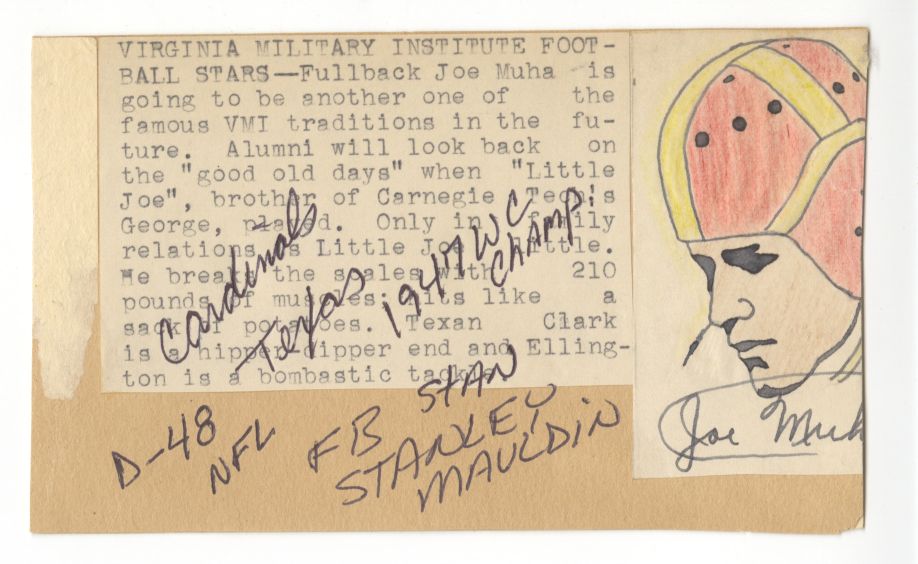 VIRGINIA MILITARY INSTITUTE FOOT-
BALL STARS—Fullback Joe Muha is
going to be another one of the
famous VMI traditions in the fu-
ture. Alumni will look back on
the "good old days" when "Little
Joe", brother of Carnegie Tech's
George, played. Only in family
relations is Little Joe little.
He breaks the scales with 210
pounds of muscles; hits like a
sack of potatoes. Texan Clark
is a hipper-dipper end and Elling-
ton is a bombastic tackle.
Cardinals
Texas
1947 WC
CHAMP.
D-48
NFL
FB STAN
STANLEY
MAULDIN
Joe Muh